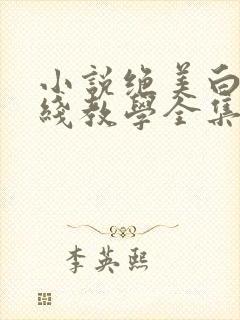 小說絕美白
綫教學全集
李英熙